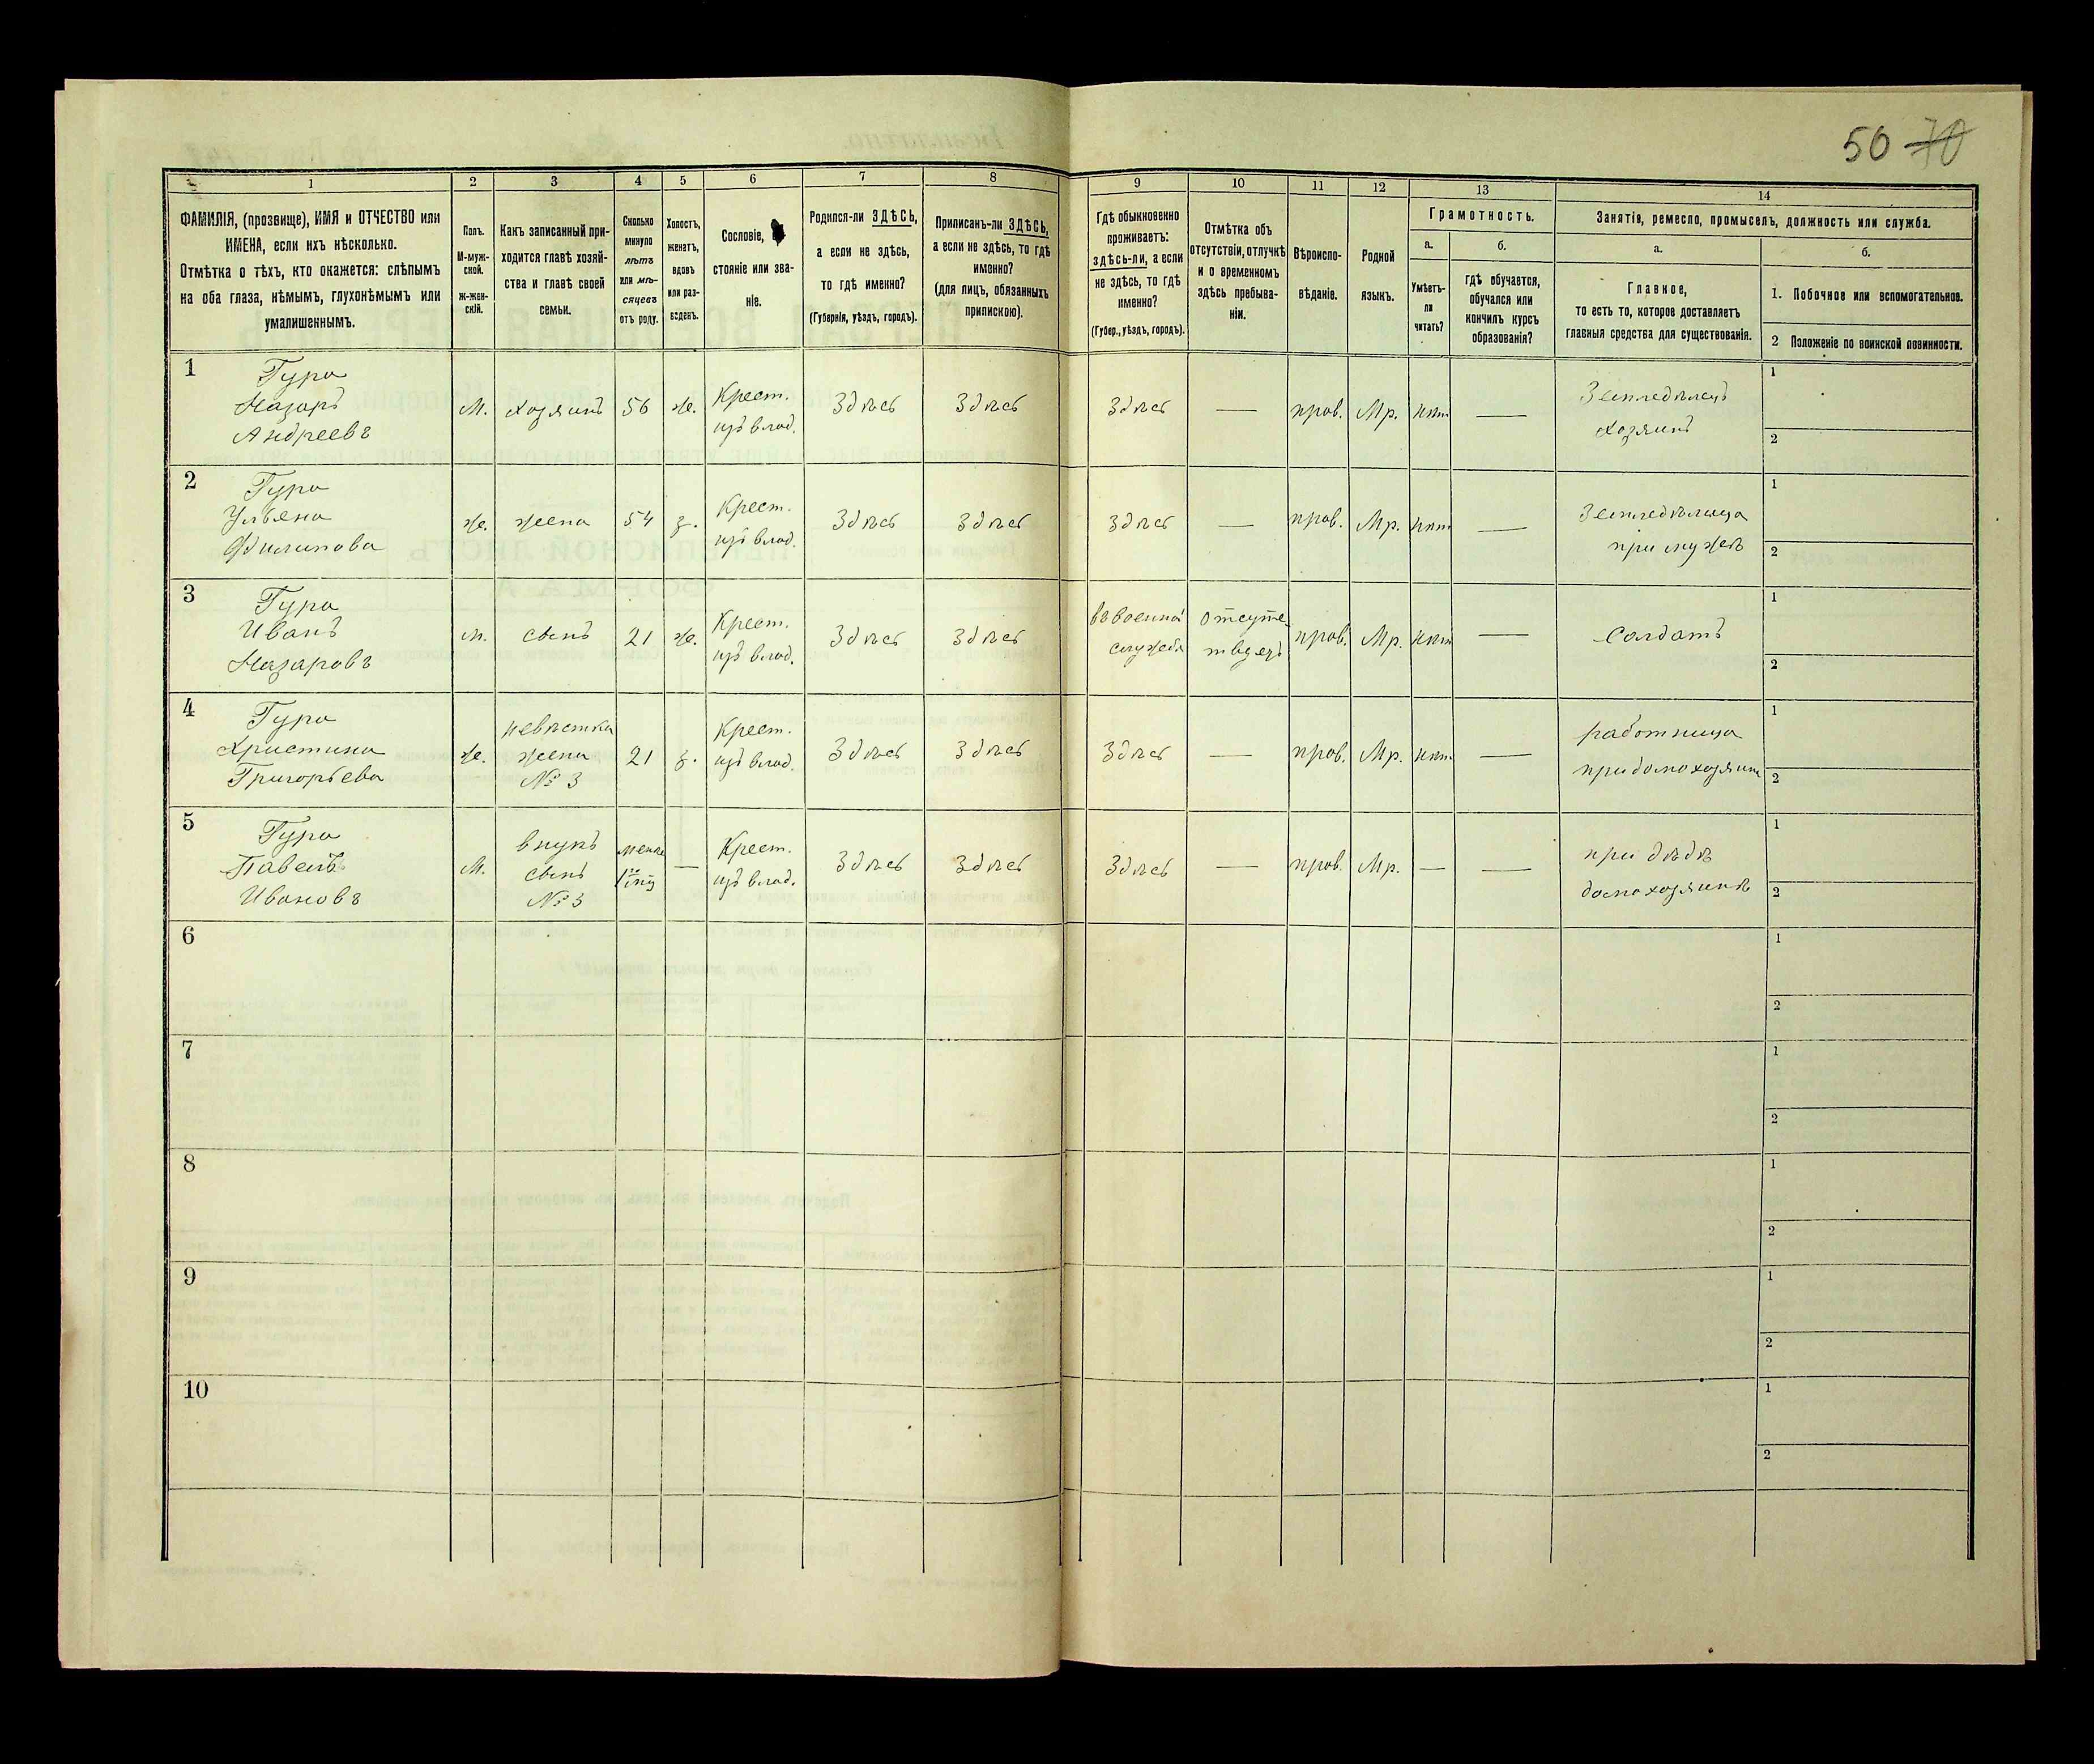 50 70
1 2 3 4 5 6 7 8 9 10 11 12 13 14
ФАМИЛІЯ, (прозвище), ИМЯ и ОТЧЕСТВО или
ИМЕНА, если ихъ нѣсколько.
Отмѣтка о тѣхъ, кто окажется: слѣпымъ
на оба глаза, нѣмымъ, глухонѣмымъ или
умалишеннымъ.
Полъ.
М-муж-
ской.
Ж-жен-
скій.
Какъ записанный при-
ходится главѣ хозяй-
ства и главѣ своей
семьи.
Сколько
минуло
лѣтъ
или мѣ-
сяцевъ
отъ роду.
Холостъ,
женатъ,
вдовъ
или раз-
веденъ.
Сословіе,
стояніе или зва-
ніе.
Родился-ли ЗДѢСЬ,
а если не здѣсь,
то гдѣ именно?
(Губернія, уѣздъ, городъ).
Приписанъ-ли ЗДѢСЬ,
а если не здѣсь, то гдѣ
именно?
(для лицъ, обязанныхъ
припискою).
Гдѣ обыкновенно
проживаетъ:
здѣсь-ли, а если
не здѣсь, то гдѣ
именно?
(Губер., уѣздъ, городъ).
Отмѣтка объ
отсутствіи, отлучкѣ
и о временномъ
здѣсь пребыва-
ніи.
Вѣроиспо-
вѣданіе.
Родной
языкъ.
Грамотность.
а.
Умѣетъ-
ли
читать?
б.
Гдѣ обучается,
обучался или
кончилъ курсъ
образованія?
Занятія, ремесло, промыселъ, должность или служба.
а.
Главное,
то есть то, которое доставляетъ
главныя средства для существованія.
б.
1. Побочное или вспомогательное.
2 Положеніе по воинской повинности.
1
Гура
Назаръ
Андреевъ
М.
хозяинъ
56
ж.
Крест.
изъ влад.
Здѣсь
Здѣсь
Здѣсь
—
прав.
Мр.
нѣт
—
Земледѣлецъ
хозяинъ
1
2
2
Гура
Ульяна
Филипова
ж.
жена
54
з.
Крест.
изъ влад.
Здѣсь
Здѣсь
Здѣсь
—
прав.
Мр.
нѣт
—
Земледѣлица
при мужѣ
1
2
3
Гура
Иванъ
Назаровъ
м.
сынъ
21
ж.
Крест.
изъ влад.
Здѣсь
Здѣсь
въ военной
службѣ
прав.
Мр.
нѣт
—
Солдатъ
1
2
4
Гура
Христина
Григорьева
ж.
невѣстка
жена
№ 3
21
з.
Крест.
изъ влад.
Здѣсь
Здѣсь
Здѣсь
—
прав.
Мр.
нѣт
—
работница
при домохозяинѣ
1
2
5
Гура
Павелъ
Ивановъ
М.
внукъ
сынъ
№ 3
—
Крест.
изъ влад.
Здѣсь
Здѣсь
Здѣсь
—
прав.
Мр.
—
—
при дѣдѣ
домохозяинѣ
1
2
6
1
2
7
1
2
8
1
2
9
1
2
10
1
2